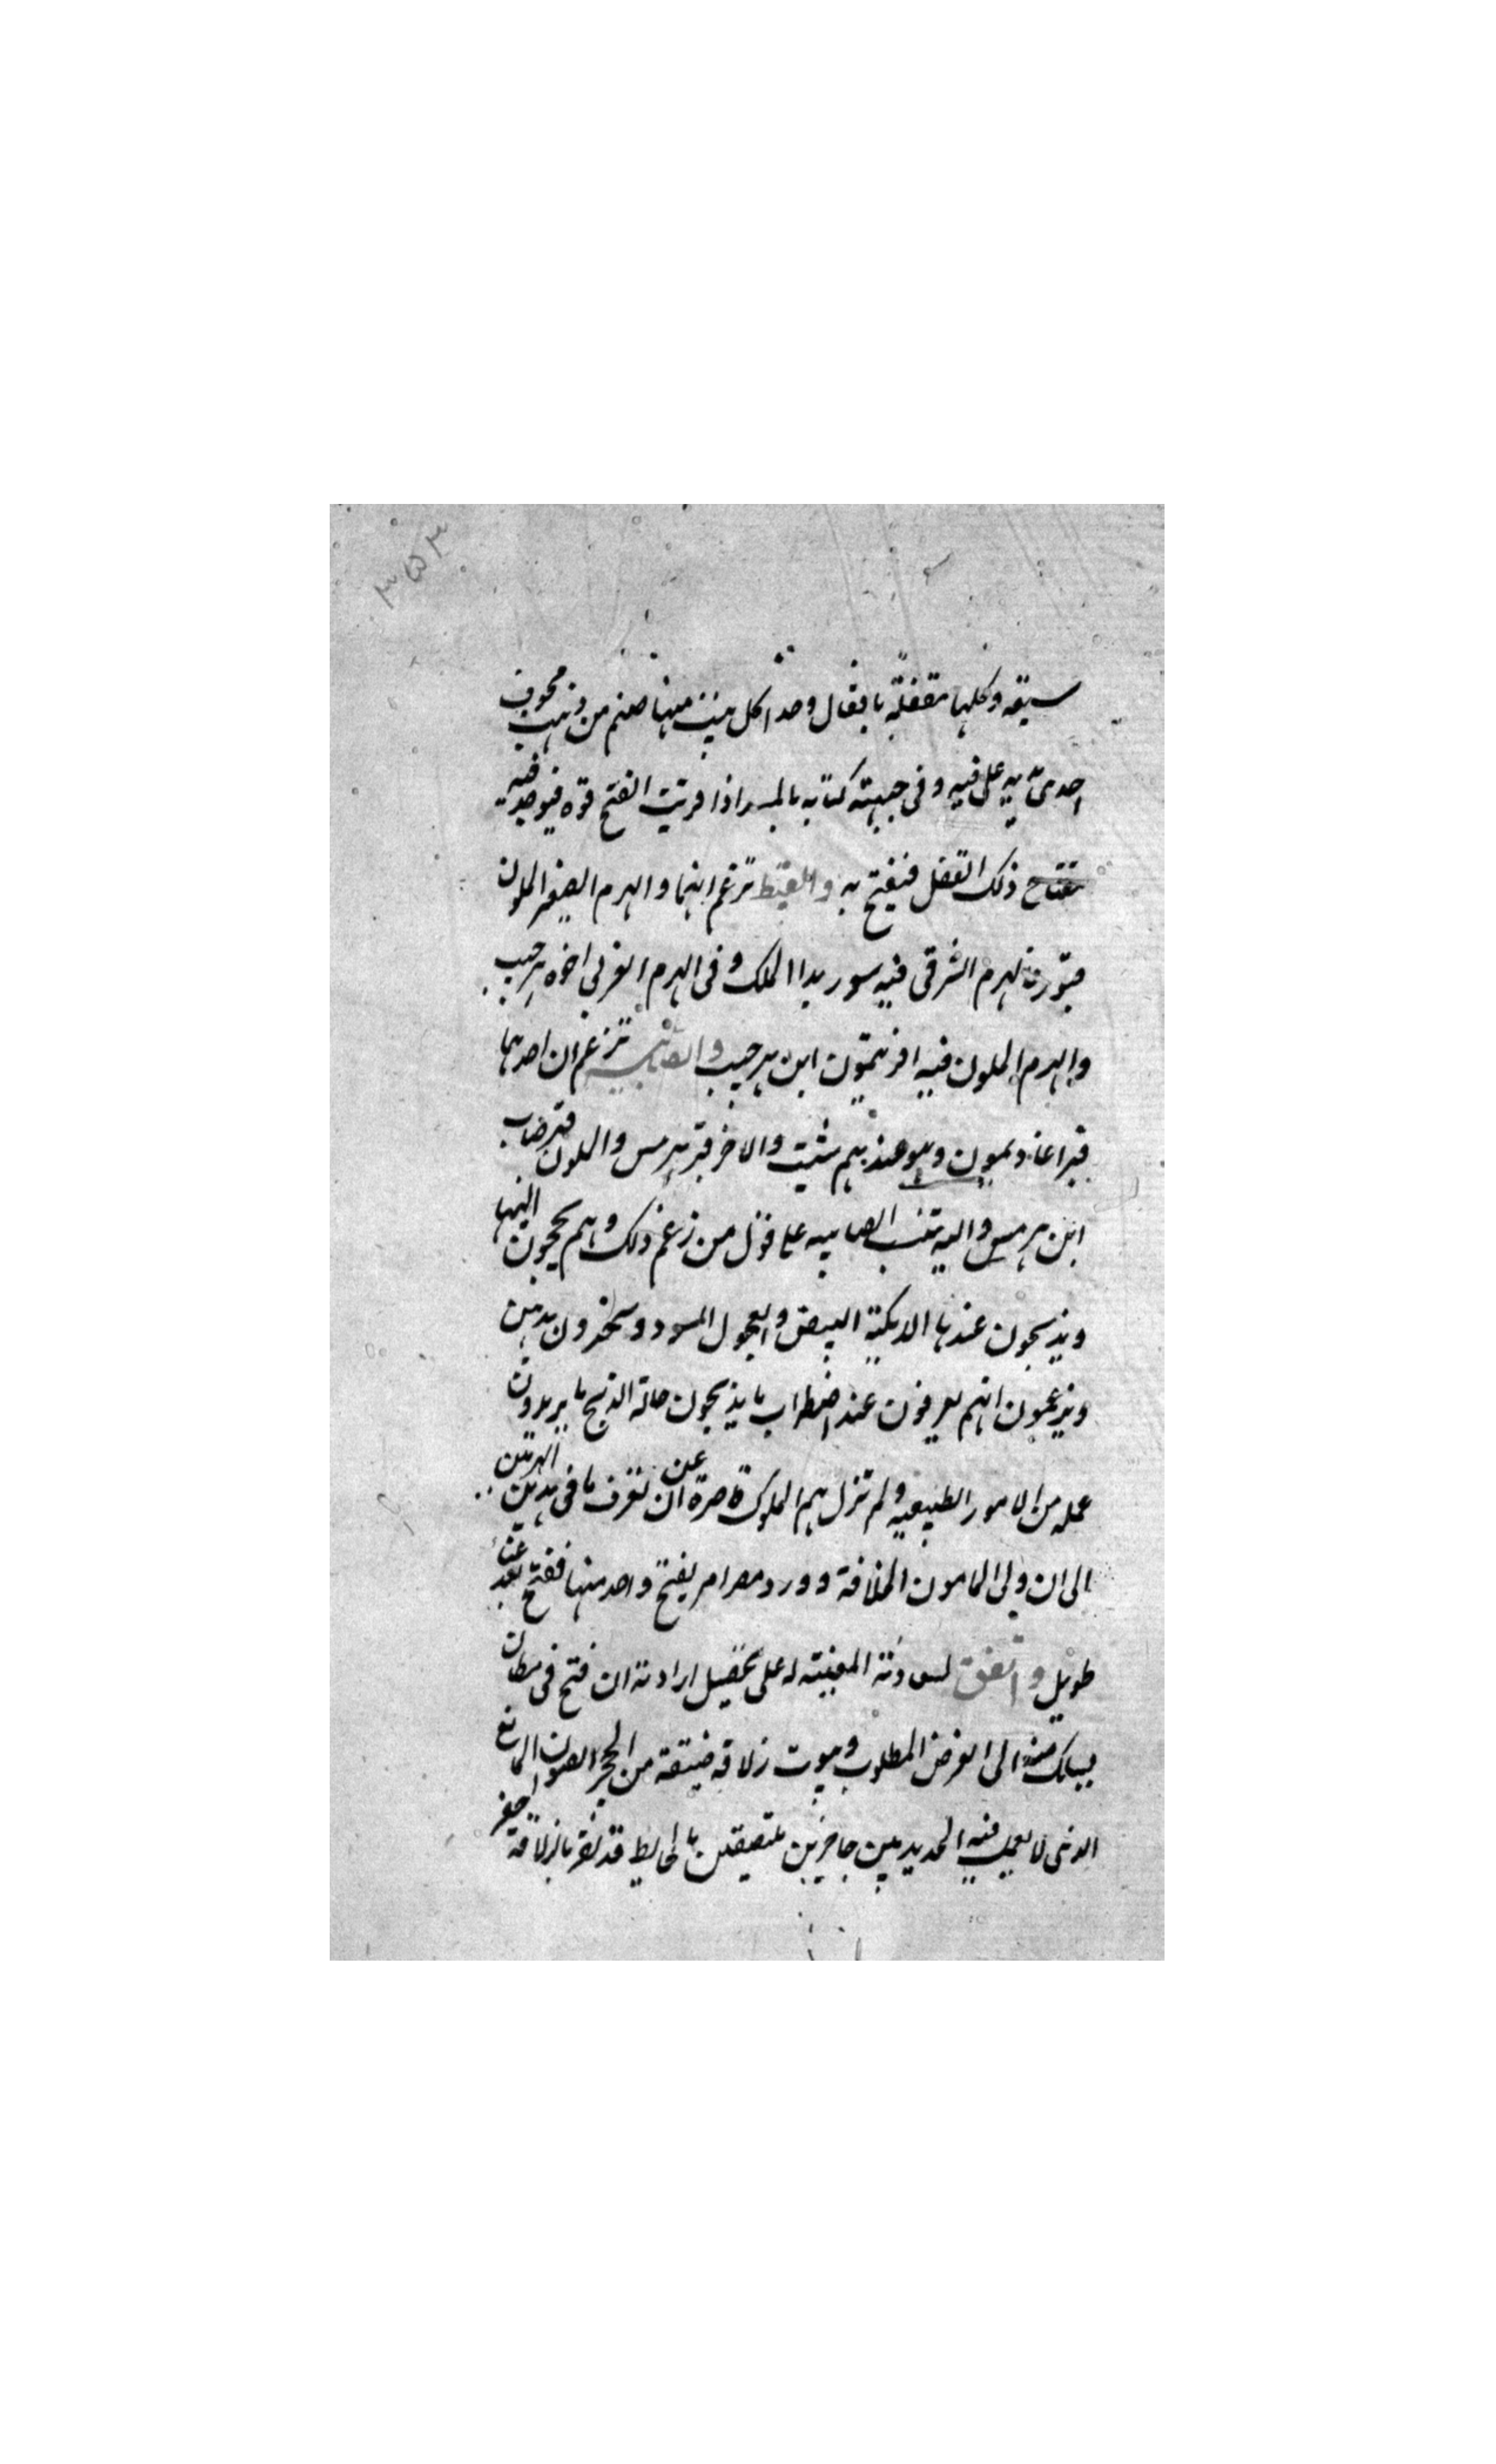 ٣٥٣
سبيقه وكلها مقفلة باقفال وحدا كل بيت منها صنم من ذهب مجوف
احدى يديه على فيه وفى جبهته كتابه بالمسند اذا قريت انفتح فوه فيوجد فيه
مفتاح ذلك القفل فيفتح به والقبط تزعم انهما والهرم الصغير الملون
قبور فالهرم الشرقى فيه سوريد الملك وفى الهرم الغربى اخوه هرجيب
والهرم الملون فيه افريمون ابن هرجيب والصابيه تزعم ان احدهما
قبر اغاذيمون وهو عندهم شيث والاخر قبر هرمس والملون قبر صاب
ابن هرمس واليه تنسب الصابيه على قول من زعم ذلك وهم يحجون اليها
ويذبحون عندها الديكة البيض والعجول السود ويبخرون بدخن
ويزعمون انهم يعرفون عند اضطراب ما يذبحون حالة الذبح ما يريدون
عمله من الامور الطبيعيه ولم تزل همم الملوك قاصرة عن ان تعرف ما فى هذين الهرمين
الى ان ولى المامون الخلافة وورد مصر امر بفتح واحد منها ففتح بعد عناء
طويل واتفق لسعادته المعينة له على تحصيل ارادته ان فتح فى مكان
يسلك منه الى الغرض المطلوب وهوت زلاقه ضيقة من الحجر الصوان المانع
الذى لا يعمل فيه الحديد بين حاجزين ملتصقين بالحايط قد نقر بالزلاقة حفر